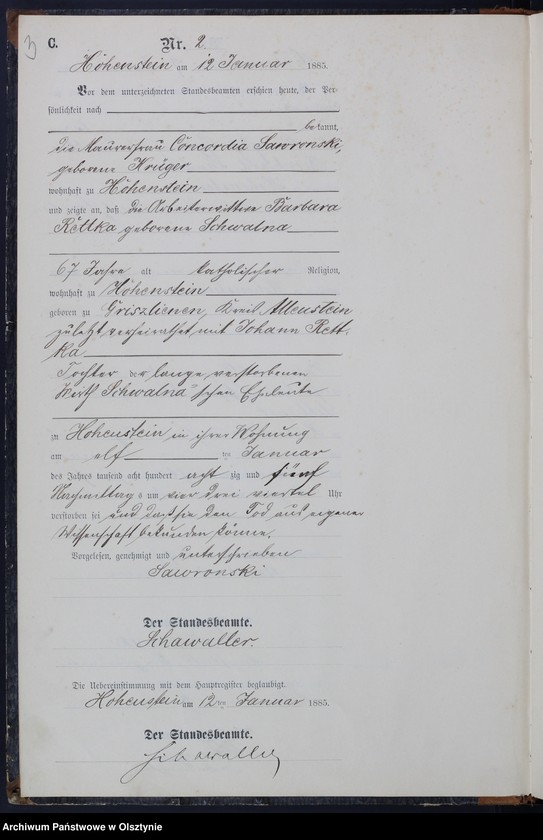 3
C.
Nr. 2.
Hohenstein am 12 Januar 1885.
Vor dem unterzeichneten Standesbeamten erschien heute, der Per-
sönlichkeit nach
bekannt,
die Maurerfrau Concordia Sawronski,
geborene Krüger
wohnhaft zu Hohenstein
und zeigte an, daß die Arbeiterwittwe Barbara
Rettka geborene Schwalna
67 Jahre alt katholischer Religion,
wohnhaft zu Hohenstein
geboren zu Grieslienen, Kreis Allenstein
zuletzt verheirathet mit Johann Rett-
ka
Tochter der lange verstorbenen
Wirth Schwalna'schen Eheleute
zu Hohenstein in ihrer Wohnung
am elf ten Januar
des Jahres tausend acht hundert acht zig und fünf
Nachmittags um vier drei viertel Uhr
verstorben sei und daß sie den Tod aus eigener
Wissenschaft bekunden könne.
Vorgelesen, genehmigt und unterschrieben
Sawronski
Der Standesbeamte.
Schawaller.
Die Uebereinstimmung mit dem Hauptregister beglaubigt.
Hohenstein am 12ten Januar 1885.
Der Standesbeamte.
Schawaller
Archiwum Państwowe w Olsztynie